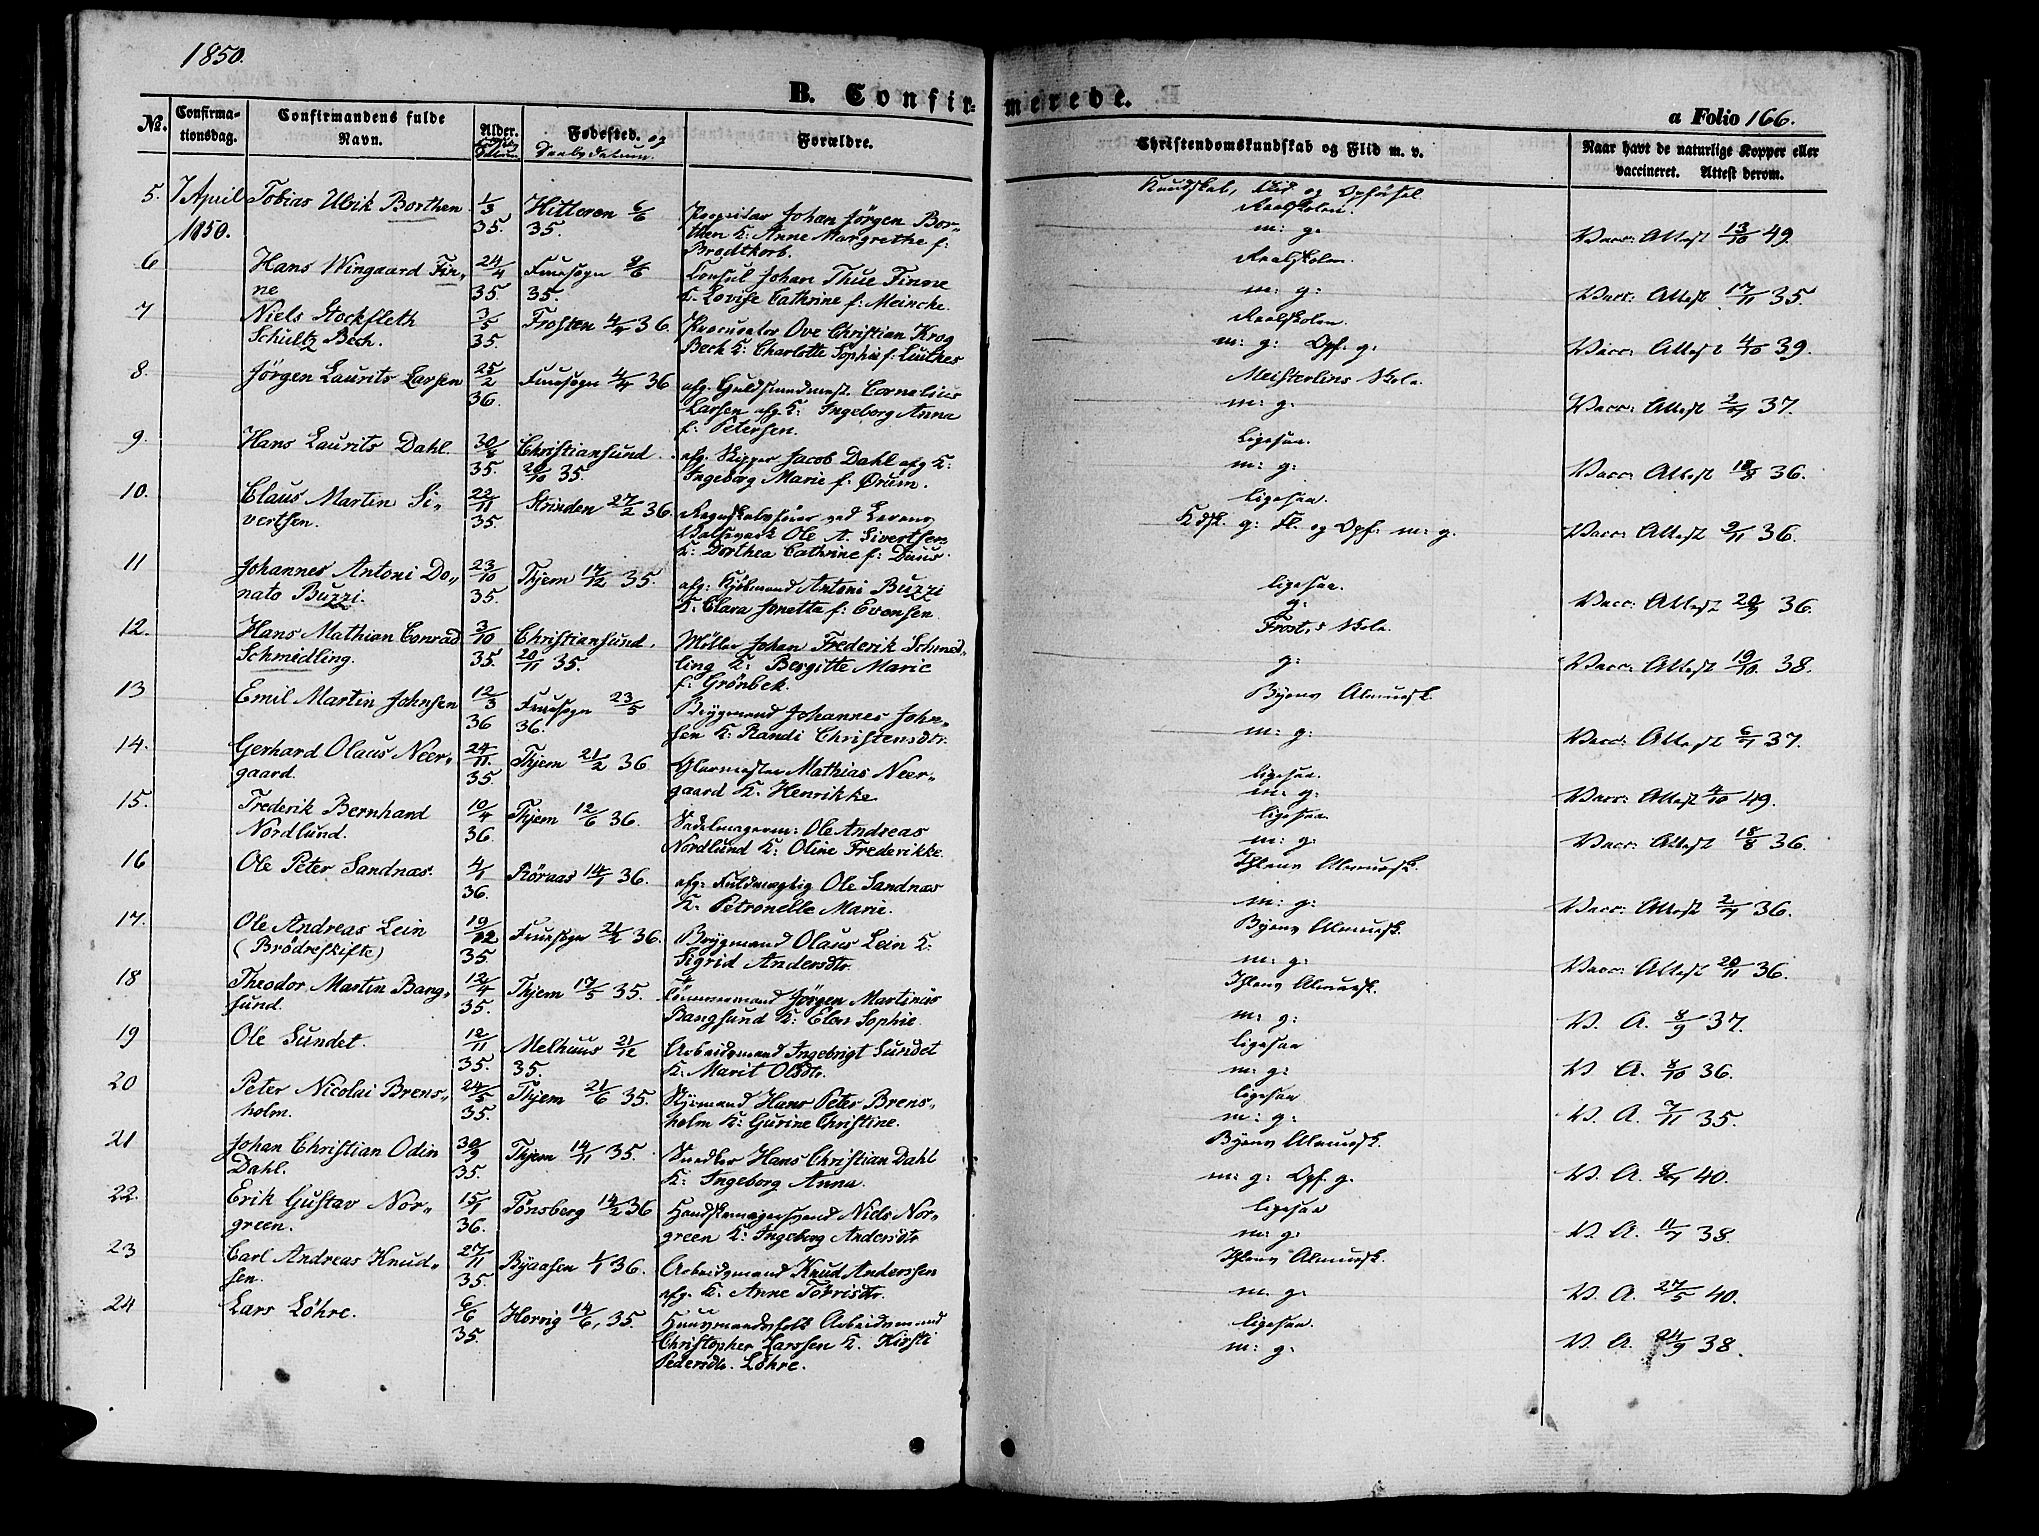 1850.
B. Confir-
merede.
a Folio 166.
No.
Confirma-
tionsdag.
Confirmandens fulde
Navn.
Alder.
Datum.
Fødested. og
Daabsdatum.
Forældre.
Christendomskundskab og Flid m. v.
Naar havt de naturlige Kopper eller
vaccineret. Attest derom.
5. 7 April 1850. Tobias Ulrik Borthen 1/3 35. Hitteren 6/6 35.
Proprietær Johan Jørgen Bor-
then K: Anne Margrethe f:
Brodtkorb.
Kundskab, Flid og Opførsel
Realskolen.
m: g. Vacc: Attest 13/10 49
6 Hans Wingaard Fin-
ne 24/4 35. Fruesogn 8/6 35.
Consul Johan Thue Finne
K. Lovise Cathrine f: Meincke.
Realskolen.
m: g: Vacc: Attest 17/11 35.
7 Niels Stockfleth
Schultz Bech. 3/5 35. Frosten 4/4 36.
Procurator Ove Christian Krog
Bech K: Charlotte Sophie f: Luthes
Realskolen.
m: g: Opf: g: Vacc: Attest 4/10 39.
8. Jørgen Laurits Larsen 25/2 36. Fruesogn 4/4 36
afg. Guldsmedmest. Cornelius
Larsen afg. K: Ingeborg Anna
f: Petersen.
Meisterlins Skole.
m: g. Vacc: Attest 2/9 37.
9. Hans Laurits Dahl. 30/8 35. Christiansund. 20/10 35.
afg. Skipper Jacob Dahl afg K:
Ingeborg Marie f: Ørum.
ligesaa.
m: g: Vacc: Attest 18/8 36.
10. Claus Martin Si-
vertsen. 22/11 35 Strinden 27/2 36.
Regnskabsfører ved
Ole A. Sivertsen
K: Dorthea Cathrine f: Daus.
ligesaa.
Kdsk. g: Fl. og Opf. m: g. Vacc: Attest 9/11 36.
11 Johannes Antoni Do-
nato Buzzi. 23/10 35. Thjem 17/12 35.
afg: Kjøbmand Antoni Buzzi
K: Clara Jonetta f: Evensen
ligesaa.
g. Vacc: Attest 20/9 36.
12. Hans Mathian Conrad
Schmidling. 3/10 35. Christiansund. 20/11 35.
Møller Johan Frederik Schmed-
ling K: Bergitte Marie
f: Grönbek.
Frost,s Skole.
g: Vacc: Attest 19/10 38.
13 Emil Martin Johnsen 12/3 36 Fruesogn 23/5 36.
Brygmand Johannes John-
sen K: Randi Christensdtr.
Byens Almuesk.
m: g: Vacc: Attest 6/7 37.
14. Gerhard Olaus Neer-
gaard. 24/11 35. Thjem 21/2 36
Glarmester Mathias Neer-
gaard K. Henrikke
ligesaa.
m: g: Vacc: Attest 4/10 49.
15. Frederik Bernhard
Nordlund. 10/4 36. Thjem 12/6 36.
Sadelmagerm: Ole Andreas
Nordlund K: Oline Frederikke.
ligesaa
m: g: Vacc: Attest 18/8 36.
16 Ole Peter Sandnæs. 4/1 36. Röraas 14/1 36.
afg: Fuldmægtig Ole Sandnæs
K: Petronelle Marie.
Ihlens Almuesk.
m: g: Vacc: Attest 2/9 36.
17. Ole Andreas Lein
(Brödreskifte) 19/12 35. Fruesogn 21/2 36.
Brygmand Olaus Lein K:
Sigrid Andersdtr.
Byens Almuesk.
m: g: Vacc: Attest 20/11 36.
18 Theodor Martin Bang-
sund. 12/4 35. Thjem 17/5 35.
Tømmermand Jørgen Martinus
Bangsund K: Elen Sophie
Ihlens Almuesk.
m: g: V. A. 8/9 37.
19 Ole Sundet. 12/11 35. Melhuus 21/12 35.
Arbeidsmand Ingebrigt Sundet
K: Marit Olsdtr.
ligesaa
m: g: V. A. 8/10 36.
20 Peter Nicolai Brens-
holm. 24/5 35. Thjem 21/6 35.
Styrmand Hans Peter Brens-
holm K: Gurine Christine.
ligesaa
m: g: V. A. 7/11 35.
21 Johan Christian Odin
Dahl. 30/9 35. Thjem 14/11 35.
Snedker Hans Christian Dahl
K: Ingeborg Anna.
Byens Almuesk.
m: g: Opf. g. V. A. 8/9 40.
22. Erik Gustav Nor-
green. 15/1 36. Tønsberg 14/2 36
Handskemagersvend Niels Nor-
green K: Ingeborg Andersdtr
ligesaa
m: g: V. A. 11/7 38.
23 Carl Andreas Knud-
sen. 27/11 35. Byaasen 1/1 36.
Arbeidsmand Knud Anderssen
afg. K: Anne Torrisdtr.
Ihlens Almuesk.
m: g: V. A. 27/5 40.
24 Lars Löhre. 6/6 35. Horrig 14/6, 35.
Huusmandsfolk Arbeidsmand
Christopher Larssen K. Kirsti
Pedersdtr. Löhre.
ligesaa.
m: g: V. A. 24/9 38.